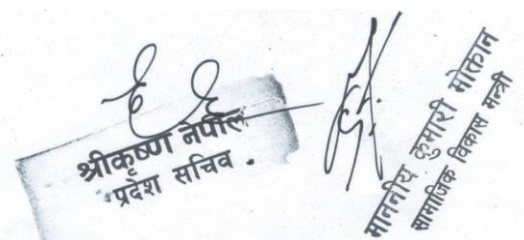 श्रीकृष्ण नेपाल
प्रदेश सचिव
माननीय कुमारी मोक्तान
सामाजिक विकास मन्त्री